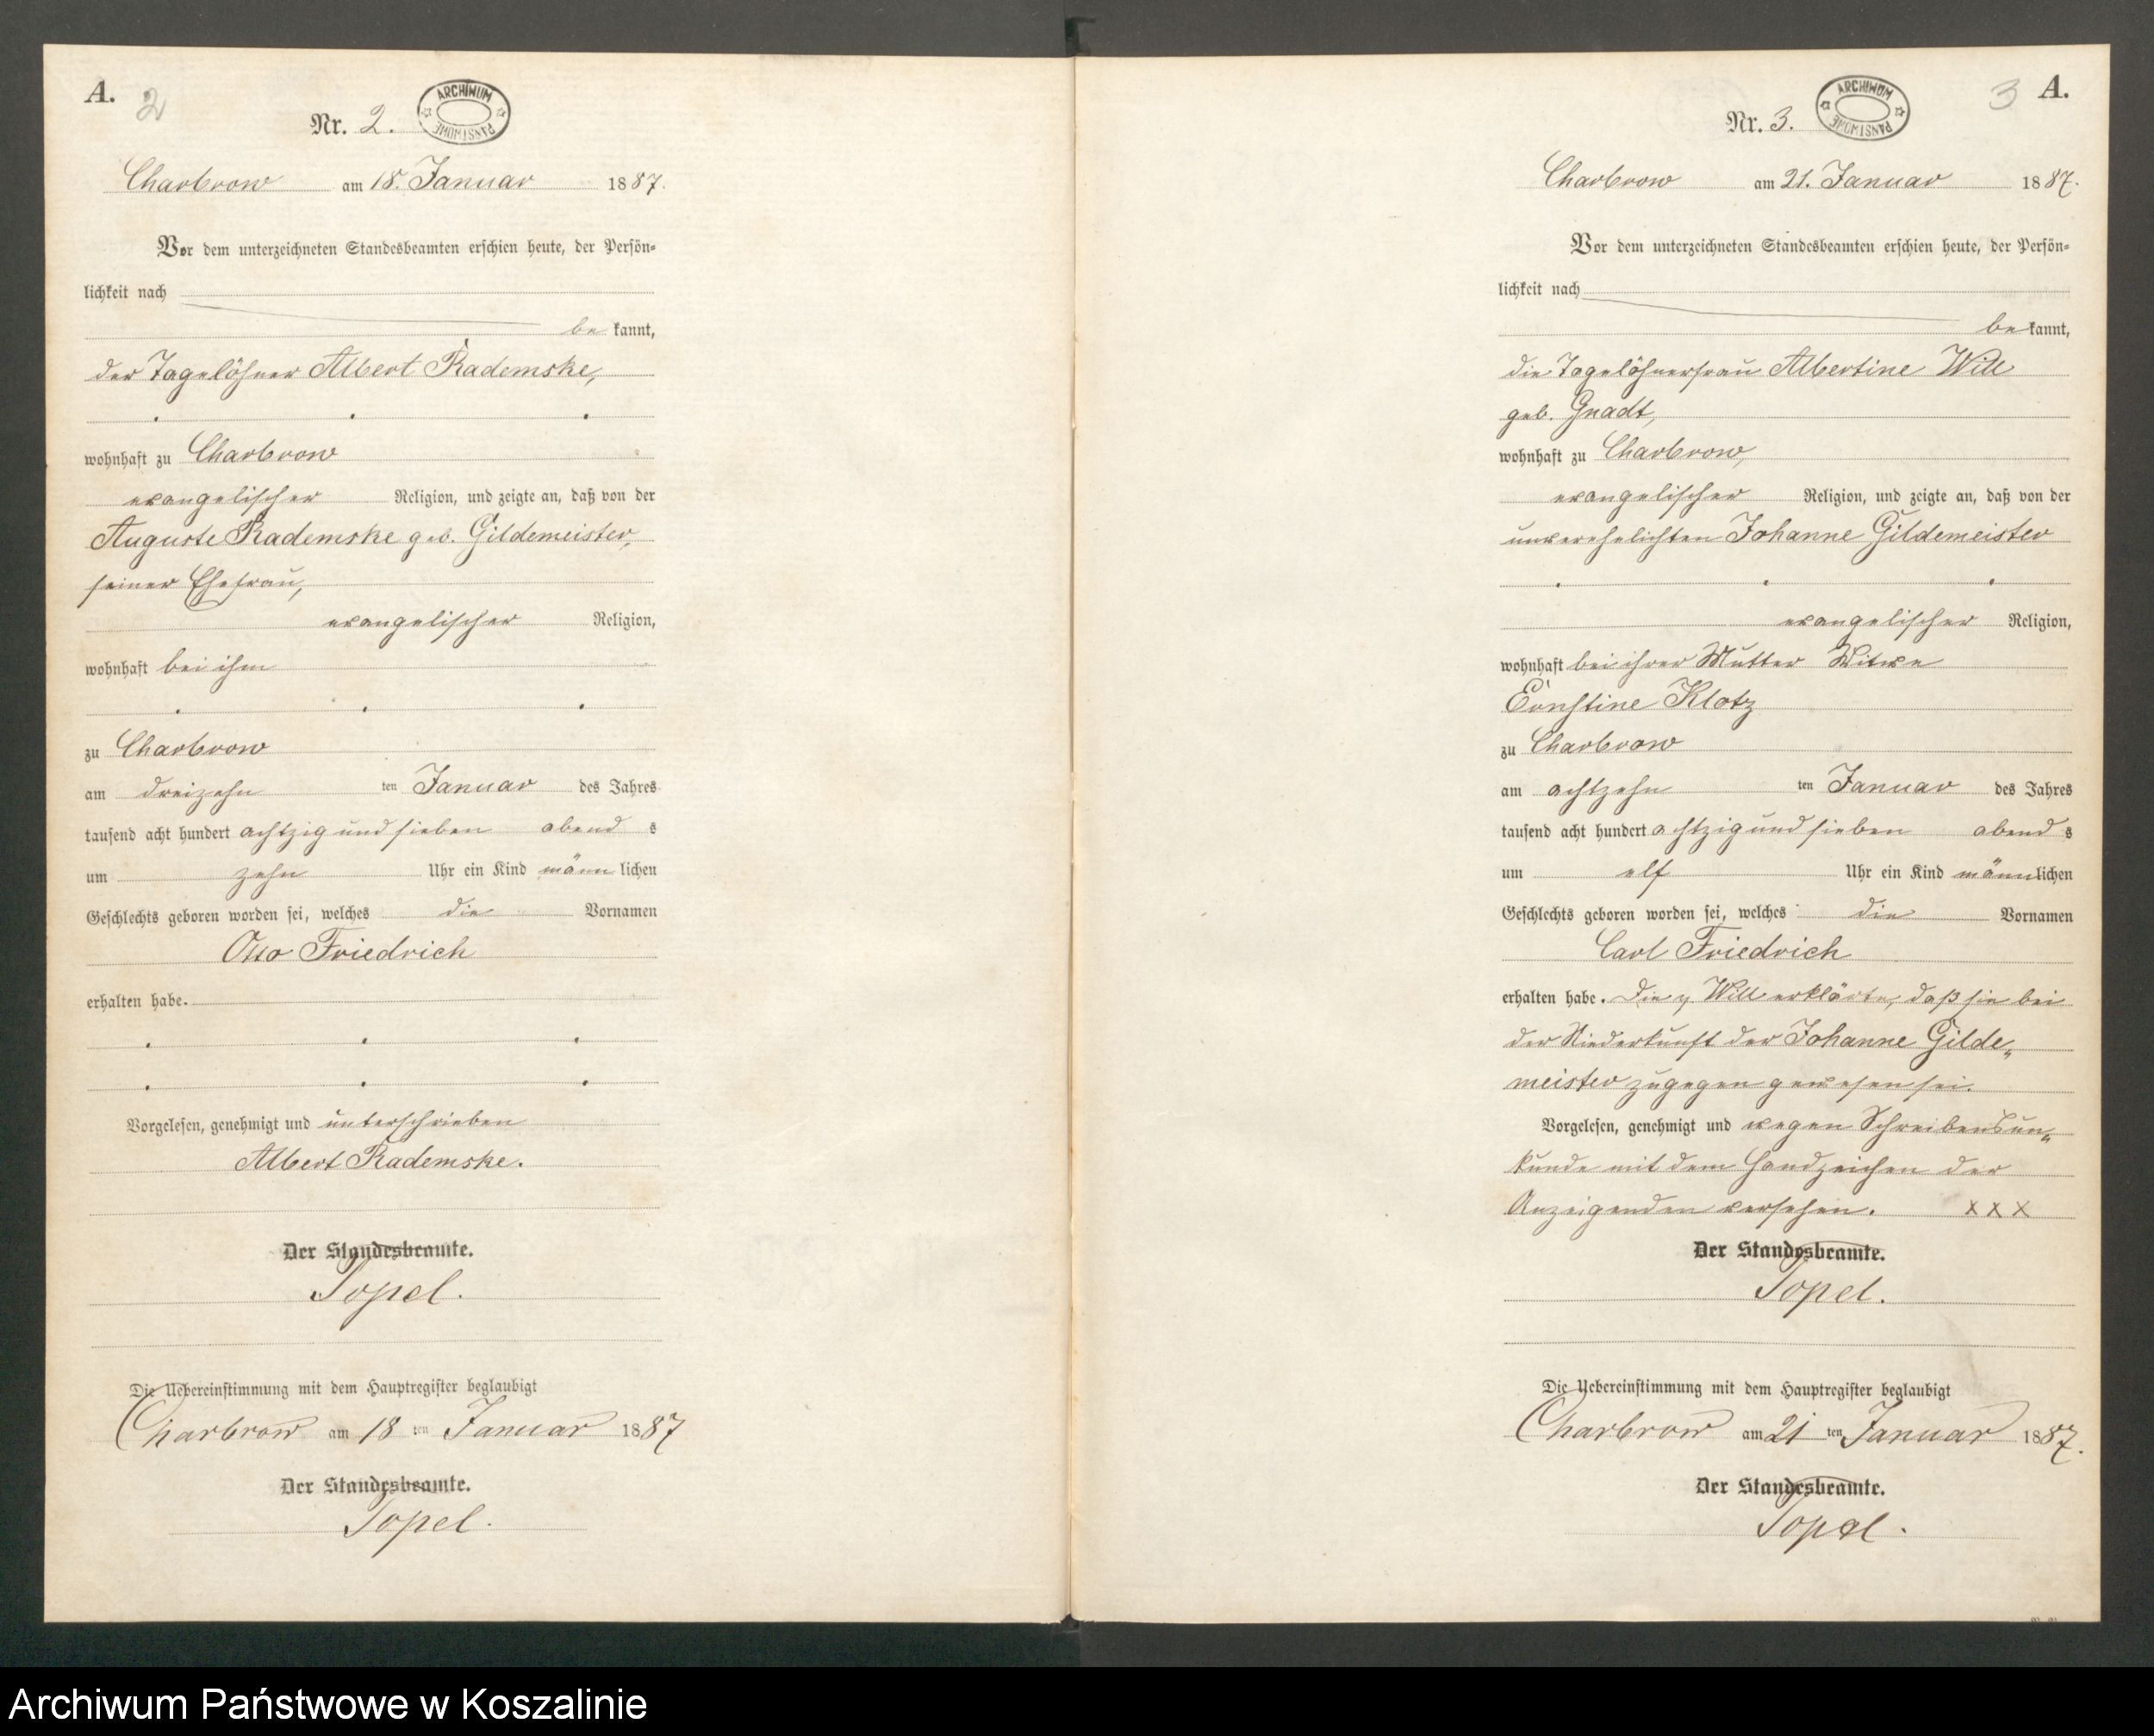 A.
2
Nr. 2.
ARCHIWUM PAŃSTWOWE
Charbrow am 18. Januar 1887.
Vor dem unterzeichneten Standesbeamten erschien heute, der Persön=
lichkeit nach
be kannt,
der Tagelöhner Albert Rademske,
wohnhaft zu Charbrow
evangelischer Religion, und zeigte an, daß von der
Auguste Rademske geb. Gildemeister,
seiner Ehefrau,
evangelischer Religion,
wohnhaft bei ihm
zu Charbrow
am dreizehn ten Januar des Jahres
tausend acht hundert achtzig und sieben abend s
um zehn Uhr ein Kind männ lichen
Geschlechts geboren worden sei, welches die Vornamen
Otto Friedrich
erhalten habe.
Vorgelesen, genehmigt und unterschrieben
Albert Rademske.
Der Standesbeamte.
Topel.
Die Uebereinstimmung mit dem Hauptregister beglaubigt
Charbrow am 18 ten Januar 1887
Der Standesbeamte.
Topel.
3 A.
Nr. 3.
ARCHIWUM PAŃSTWOWE
Charbrow am 21. Januar 1887.
Vor dem unterzeichneten Standesbeamten erschien heute, der Persön=
lichkeit nach
be kannt,
die Tagelöhnerfrau Albertine Will
geb. Gnadt,
wohnhaft zu Charbrow,
evangelischer Religion, und zeigte an, daß von der
unverehelichten Johanne Gildemeister
evangelischer Religion,
wohnhaft bei ihrer Mutter Witwe
Ernstine Klotz
zu Charbrow
am achtzehn ten Januar des Jahres
tausend acht hundert achtzig und sieben abend s
um elf Uhr ein Kind männlichen
Geschlechts geboren worden sei, welches die Vornamen
Carl Friedrich
erhalten habe. Die p Will erklärte, daß sie bei
der Niederkunft der Johanne Gilde„
meister zugegen gewesen sei.
Vorgelesen, genehmigt und wegen Schreibensun„
kunde mit dem Handzeichen der
Anzeigenden versehen. x x x
Der Standesbeamte.
Topel.
Die Uebereinstimmung mit dem Hauptregister beglaubigt
Charbrow am 21 ten Januar 1887.
Der Standesbeamte.
Topel.
Archiwum Państwowe w Koszalinie